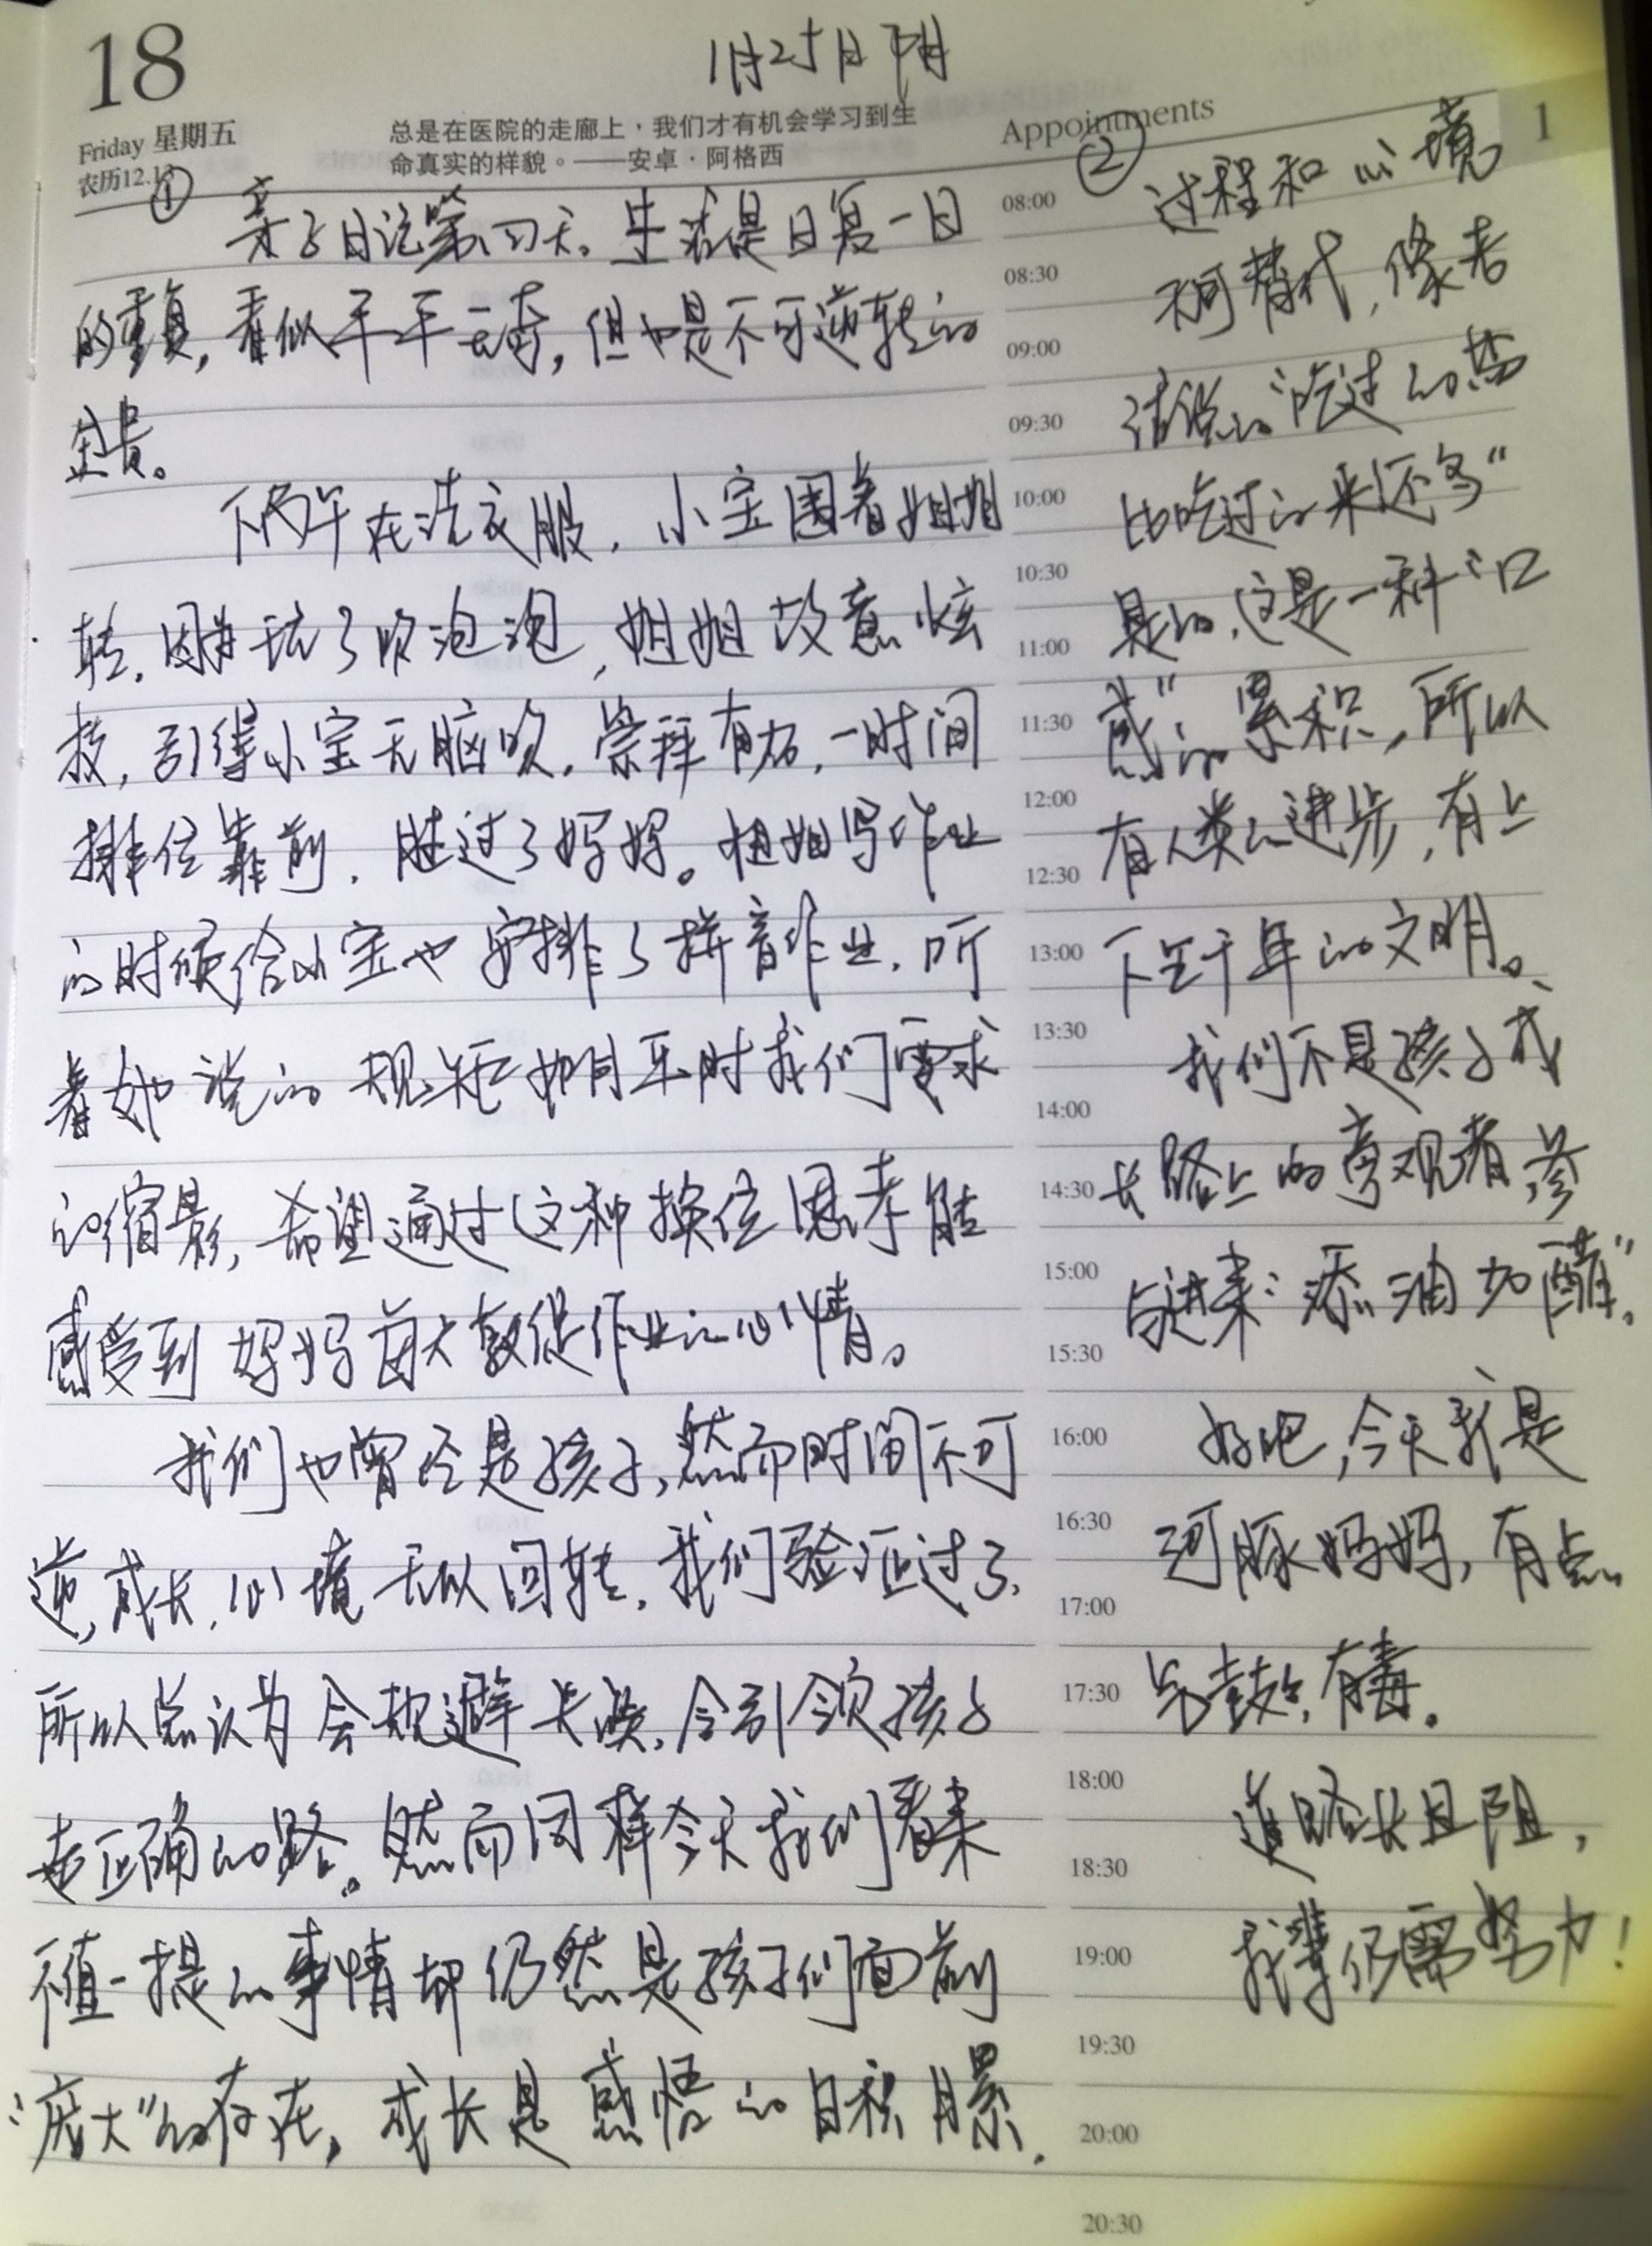 18
1月25日 阴
Friday 星期五
农历12.13
总是在医院的走廊上，我们才有机会学习到生
命真实的样貌。——安卓·阿格西
Appointments
1
①
亲子日记第四天。生活是日复一日
的重复，看似平平无奇，但也是不可逆转的
金贵。
下午在洗衣服，小宝围着姐姐
转，因为玩了吹泡泡，姐姐故意炫
技，引得小宝无脑吹，崇拜有加，一时间
排位靠前，胜过了妈妈。姐姐写作业
的时候给小宝也安排了拼音作业，听
着她说的规矩如同平时我们要求
的缩影，希望通过这种换位思考能
感受到妈妈每天敦促作业的心情。
我们也曾经是孩子，然而时间不可
逆，成长，心境无以回转，我们验证过了，
所以总认为会规避失误，会引领孩子
走正确的路。然而同样今天我们看来
不值一提的事情却仍然是孩子们面前
“庞大”的存在，成长是感悟的日积月累，
②
过程和心境
不可替代，像老
话说的“吃过的盐
比吃过的米还多”
是的，这是一种“口
感”的累积，所以
有人类的进步，有上
下五千年的文明。
我们不是孩子成
长路上的旁观者，参
与进来“添油加醋”。
好吧，今天我是
河豚妈妈，有点
气鼓，有毒。
道路长且阻，
我辈仍需努力！
08:00
08:30
09:00
09:30
10:00
10:30
11:00
11:30
12:00
12:30
13:00
13:30
14:00
14:30
15:00
15:30
16:00
16:30
17:00
17:30
18:00
18:30
19:00
19:30
20:00
20:30